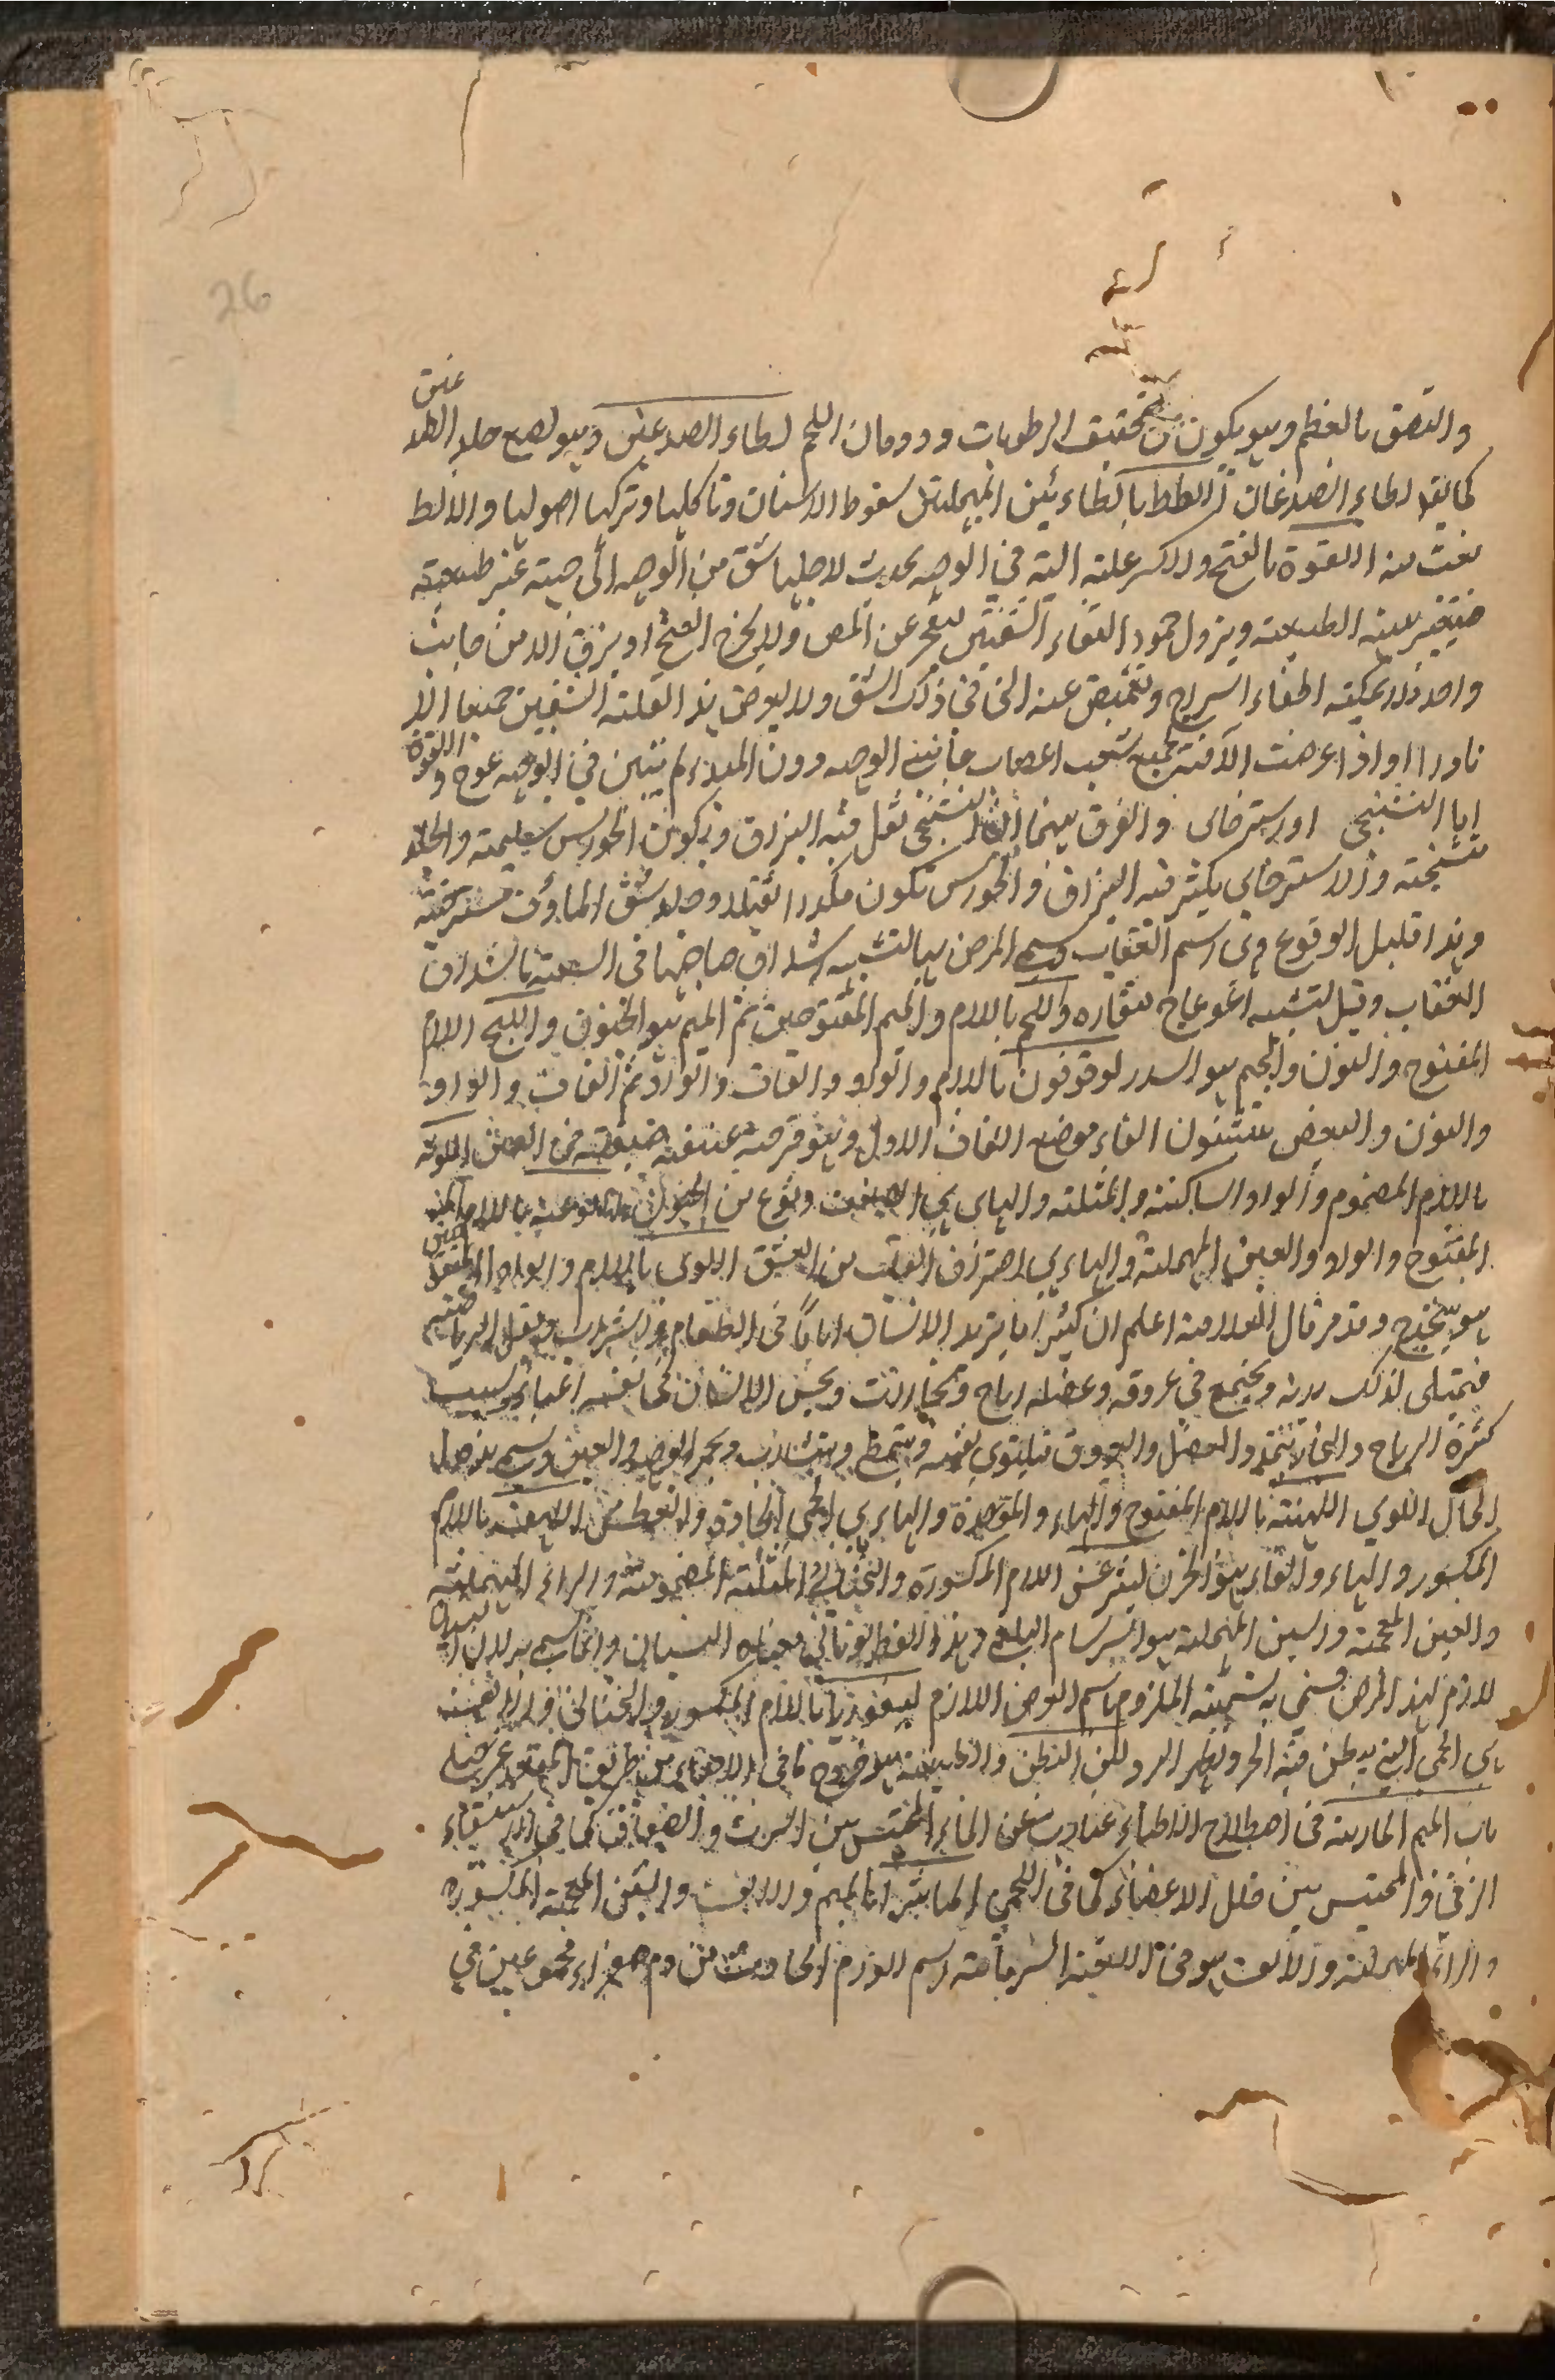 26
عنق
والتصق بالعظم وهو يكون من تخفيف الرطوبات وذوبان اللحم لطاء الصدغين وهو لصع جلد
كما يقع لطاء الصدغان اللطط بالطاءين المهملتين سقوط الاسنان وتاكلها وتركها اصولها والالط
نعت منه اللقوة بالفتح والكسر علة الية في الوجه يحدث لاجلها شق من الوجه الى جهة غير طبيعته
فيتغير هيئة الطبيعة ويزول جودة التقاء الشفتين عن المص ولا يخرج النفخ او بزق الا من جانب
واحد ولا يمكنه اطفاء السراج وتغميض عينه التى في ذلك الشق ولا يعرض هذه العلة الشقين جميعا الا
نادرا اذا عرضت الآفة بجميع شعب اعصاب جانبي الوجه دون المبدء لم يتبين في الوجه عوج واللقوة
اما التشنجي او استرخاى والفرق بينهما ان التشنجي تقل فيه البزاق وتكون الحواس سليمة والجلد
متشنجة والاسترخاى يكثر فيه البزاق والحواس تكون مكدرا ثقيلا وجلد شق الماؤف مسترخية
وهذا قليل الوقوع وهى اسم العقاب وسمى المرض بها لتشبيه اشداق صاحبها فى السعة باشداق
العقاب وقيل لتشبيه اعوجاج منقاره واللجم باللام والجيم المفتوحين ثم الميم هو الخنوق واللبج اللام
المفتوح والنون والجيم هو السدر لوقوفون باللام والواو والقاف والواو ثم القاف والواو
والنون والبعض يثبتون الفاء موضع القاف الاول وهو قرحة عنيفة ضيقة في العين اللوثة
باللام المضموم والواو الساكنة والمثلثة والهاى هى الضعف ونوع من الجنون اللوعة باللام
المفتوح والواو والعين المهملة والهاء هى احتراق القلب من العشق اللوى باللام والواو المفتوحتين
هو وقد مر قال العلامة اعلم ان كثيرا ما يزيد الانسان اياما فى الطعام والشراب ويقل الرياضة
فيمتلى لذلك بدنه ويجتمع في عروقه وعضله رياح وبخارات ويحس الانسان فى نفسه اعياء بسبب
كثرة الرياح والبخارات تتمدد العضل والعروق فيلتوى نفسه ويتمطى ويتثاءب ويحمر الوجه والعين ويسمى هذه
الحال اللوى اللهبة باللام المفتوح والهاء والموحدة والهاء هى الحمى الحادة والعطش اللهف باللام
المكسور والهاء والفاء هو الحزن ليثرغس اللام المكسورة والتحتانى والمثلثة المضمومة والراء المهملة
والغين المعجمة والسين المهملة هو السرسام البلغمى وهذا اللفظ يونانى معناه النسيان وانما سمى به لان النسيان
لازم لهذا المرض فسمى به تسمية الملزوم باسم العرض اللازم ليفوريا باللام المكسورة والتحتانى
هى الحمى التى يبطن فيه الحر ويظهر البرد
باب الميم المادية فى اصطلاح الاطباء عبارت عن الماء المحتبس بين الثرب والصفاق كما فى الاستسقاء
الزقى والمحتبس بين خلل الاعضاء كما فى اللحمى الماشرا بالميم والالف والشين المعجمة المكسورة
والراء المهملة والالف هو فى اللغة السريانية اسم الورم الحادث من دم صفراء مجموعين فى